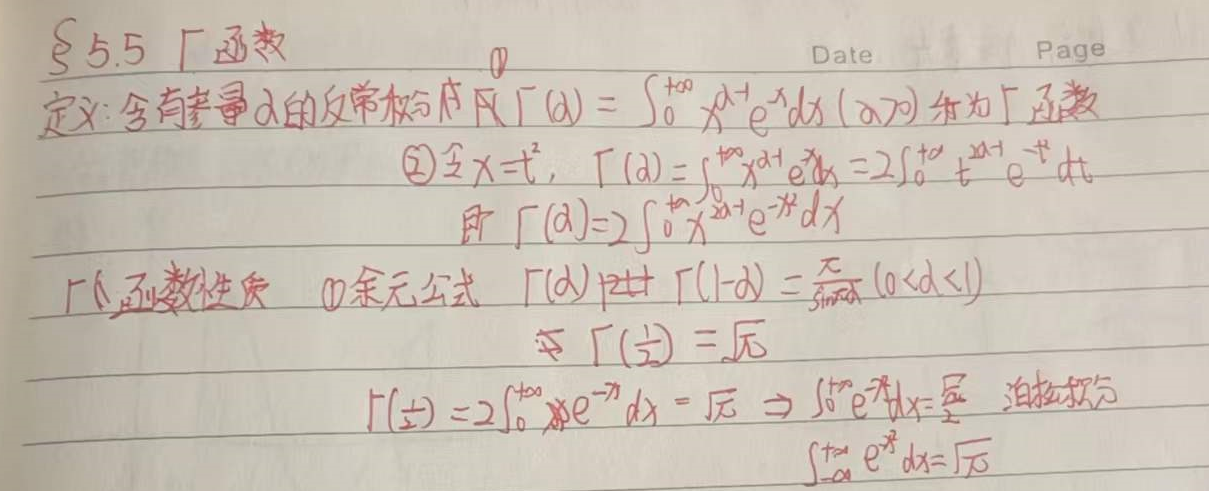 §5.5 Γ函数
Date Page
定义: 含有参量α的反常积分 ① Γ(α) = ∫₀^{+∞} x^{α-1} e^{-x} dx (α>0) 称为Γ函数
②令 x=t², Γ(α) = ∫₀^{+∞} x^{α-1} e^{-x} dx = 2∫₀^{+∞} t^{2α-1} e^{-t²} dt
即 Γ(α)=2∫₀^{+∞} x^{2α-1} e^{-x²} dx
Γ函数性质 ①余元公式 Γ(α) Γ(1-α) = π/sinπα (0<α<1)
Γ(1/2) = √π
Γ(1/2) = 2∫₀^{+∞} e^{-x²} dx = √π ⇒ ∫₀^{+∞} e^{-x²} dx = √π/2 泊松积分
∫_{-∞}^{+∞} e^{-x²} dx = √π